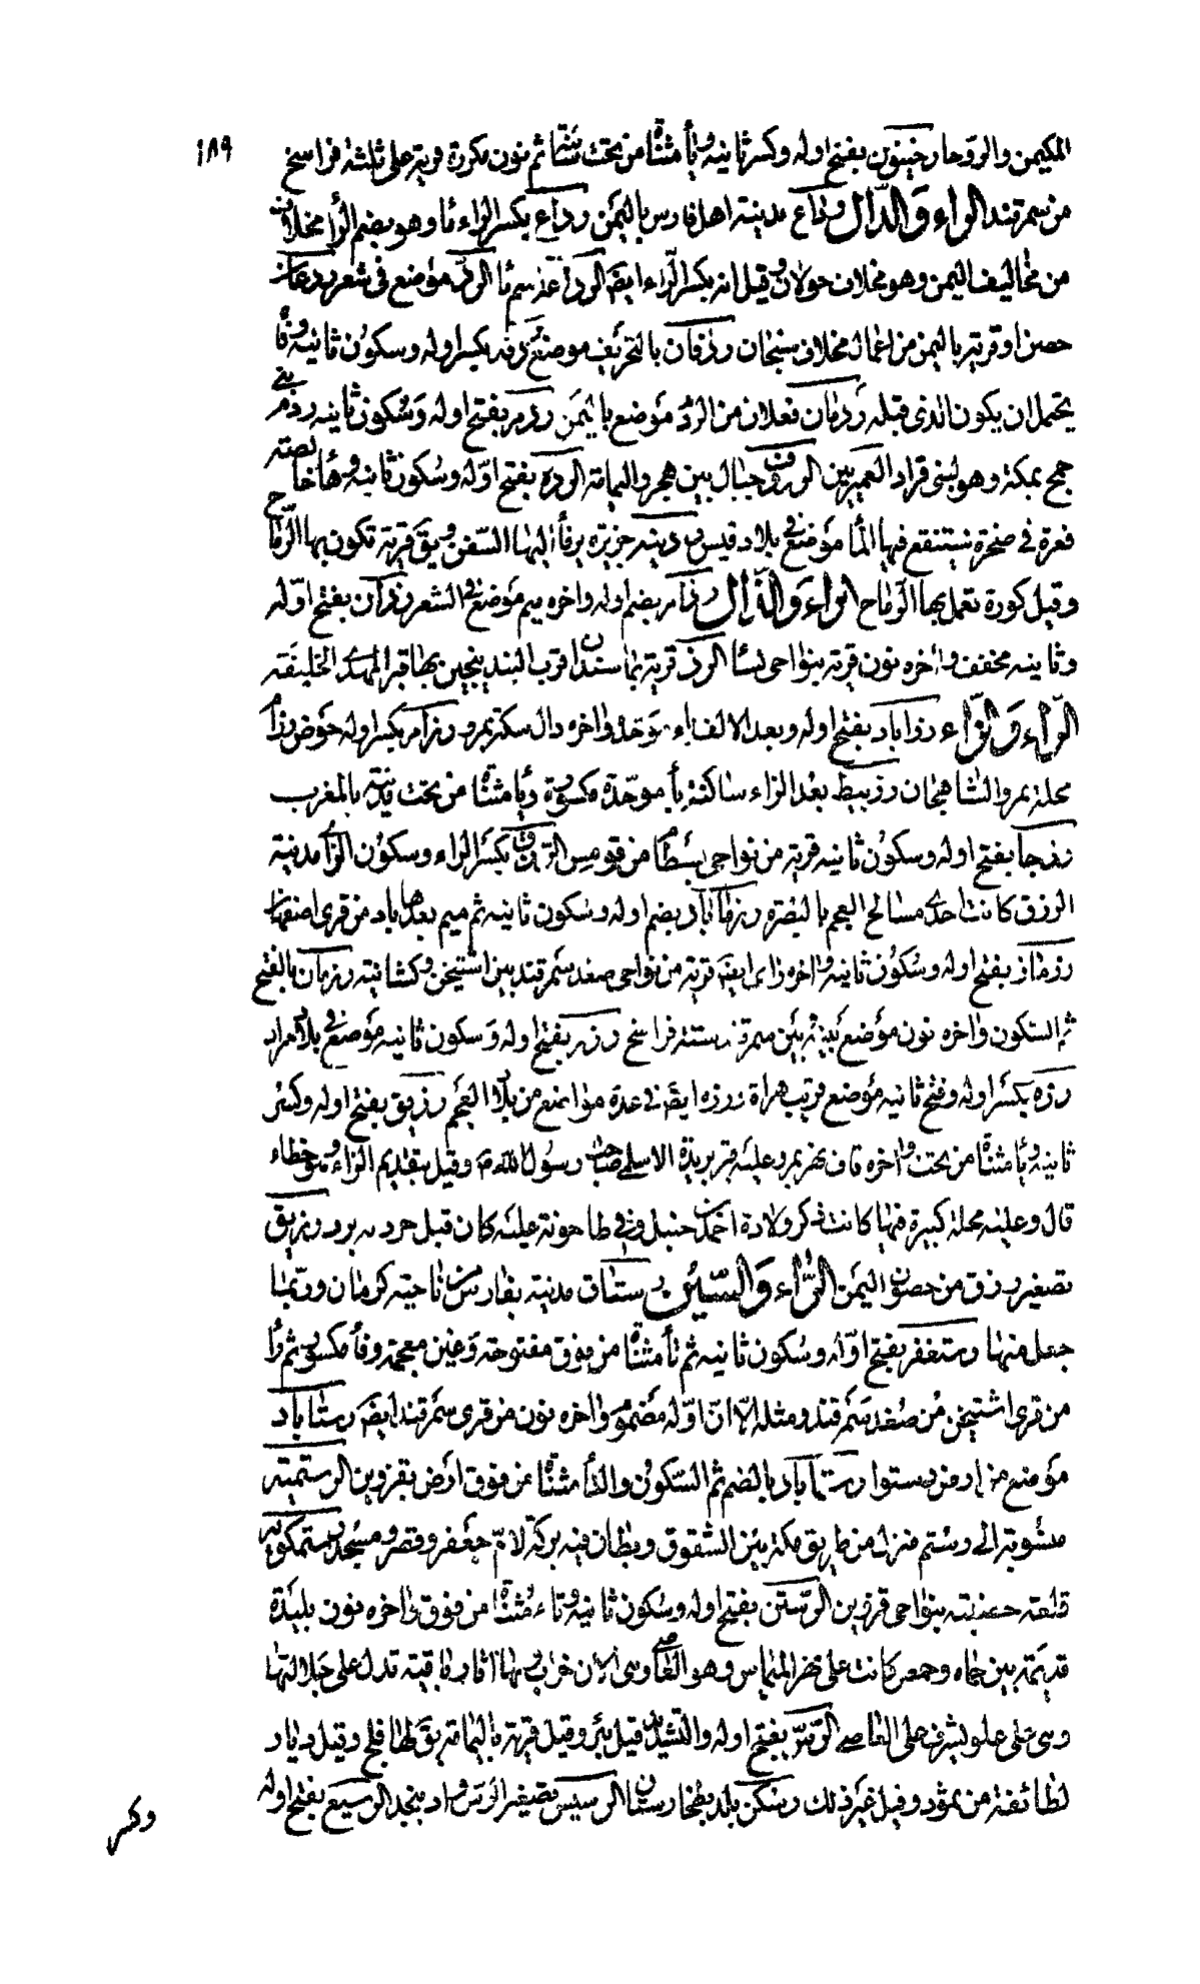 ١٨٩
المكيمن والروحا رخينون بفتح اوله وكسر ثانيه ويأ مثناة من تحت ثم نون مكررة قرية على ثلثة فراسخ
من سمرقند الراء والدال رداع مدينة اهل فارس باليمن رداع بكسر الراء ثا وهو بضم الرأ مخلاف
من مخاليف اليمن وهو مخلاف خولان وقيل انه بكسر الراء ايضا موضع في شعر
حصن او قرية باليمن من اعمال مخلاف سنحان ردفان بالتحريف موضع ردفه بكسر اوله وسكون ثانيه وفا
يحتمل ان يكون الذى قبله ردمان فعلان من الردم موضع باليمن ردم بفتح اوله وسكون ثانيه ردم بني
جمح بمكة وهو لبنى قراد جبال بين هجر واليمامة الرده بفتح اوله وسكون ثانيه وها خالصة
فعرة في صخرة يستنقع فيها الما موضع في بلاد قيس ردينه جزيرة يرفأ اليها السفن ويق قرية تكون بها الرماح
وقيل كورة تعمل بها الرماح الراء والذال رذام بضم اوله واخره ميم موضع في الشعر رذان بفتح اوله
وثانيه مخفف واخره نون قرية بنواحى نسا الرذ قرية بماسبذان قرب البندنيجين بها قبر المهدى الخليفه
الراء والزاء رزاباد بفتح اوله وبعد الالف باء موحدة واخره دال سكة بمرو رزام بكسر اوله حوض رزام
محلة بمرو الشاهجان رزبيط بعد الزاء ساكنة بأ موحدة مكسورة ويا مثناة من تحت مدينة بالمغرب
رزجا بفتح اوله وسكون ثانيه قرية من نواحى بسطام من قومس الرزق بكسر الراء وسكون الزا مدينة
الرزق كانت احدى مسالح العجم بالبصرة رزماباد بضم اوله وسكون ثانيه ثم ميم بعدها باد من قرى اصفهان
رزماز بفتح اوله وسكون ثانيه واخره زاى ايضا قرية من نواحى صغد سمرقند بين اشتيخن وكشانية رزمان بالفتح
ثم السكون واخره نون موضع بينه وبين سمرقند ستة فراسخ رزم بفتح اوله وسكون ثانيه موضع في بلاد مراد
رزه بكسر اوله وفتح ثانيه موضع قريب هراة ورزه ايضا في عدة مواضع من بلاد العجم رزيق بفتح اوله وكسر
ثانيه ويا مثناة من تحت واخره قاف نهر بمرو عليه قبر بريدة الاسلمى صاحب رسول الله وقيل بتقديم الزاء وهو خطاء
قال وعليه محلة كبيرة فيها كانت ولادة احمد بن حنبل وفي طاحونة عليه كان قتل رزيق
تصغير رزق من حصون اليمن الراء والسين رستاق مدينة بفارس من ناحية كرمان وربما
جعل منها رستغفر بفتح اوله وسكون ثانيه ثم تأ مثناة من فوق مفتوحة وغين معجمة وفأ مكسورة ثم را
من قرى اشتيخن من صغد سمرقند ومثله الا ان اوله مضموم واخره نون من قرى سمرقند ايضا رستاباد
موضع من ارض دستوا رستماباد بالضم ثم السكون والتأ مثناة من فوق ارض بقزوين الرستمية
منسوبة الى رستم منزل من طريق مكة بين الشقوق وبطان فيه بركة لام جعفر وقصر ومسجد رستمكويه
قلعة حصينة بنواحى قزوين الرستن بفتح اوله وسكون ثانيه وتاء مثناة من فوق واخره نون بليدة
قديمة بين حماه وحمص كانت على نهر الميماس وهو العاصى وهى الان خراب بها اثار باقية تدل على جلالتها
وهى على علو يشرف على العاصى الرس بفتح اوله والتشديد قيل بئر وقيل قرية باليمامة يق لها فلج وقيل ديار
لطائفة من ثمود وقيل غير ذلك رسكن بلد بطخارستان الرسيس تصغير الرس واد بنجد الرسيع بفتح اوله
وكسر